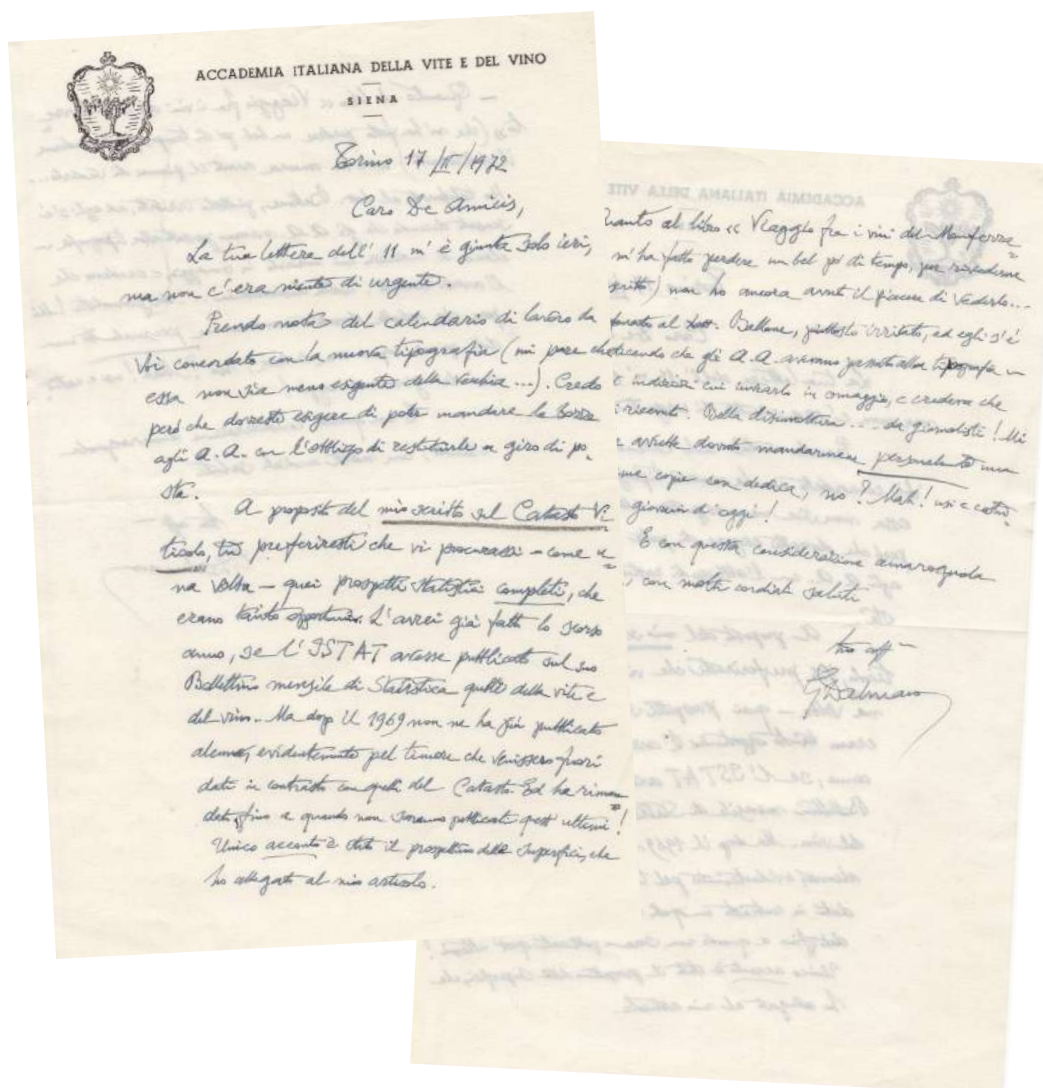 ACCADEMIA ITALIANA DELLA VITE E DEL VINO
SIENA
Torino 17/II/1972
Caro De Amicis,
La tua lettera dell' 11 m'è giunta solo ieri,
ma non c'era niente di urgente.
Prendo nota del calendario di lavoro da
Voi concordato con la nuova tipografia (mi pare che
essa non sia meno esigente della vecchia ...). Credo
però che dovreste esigere di poter mandare le bozze
agli A.A. con l'obbligo di restituirle a giro di po-
sta.
A proposito del mio scritto sul Catasto Vi=
ticolo, tu preferiresti che vi procurassi – come u=
na volta – quei prospetti statistici completi, che
erano tanto opportuni. L'avrei già fatto lo scorso
anno, se l'ISTAT avesse pubblicato sul suo
Bollettino mensile di Statistica quelli della vite e
del vino. Ma dopo il 1969 non ne ha più pubblicato
alcuno, evidentemente pel timore che venissero fuori
dati in contrasto con quelli del Catasto. Ed ha riman=
dato fino a quando non saranno pubblicati quest'ultimi!
Unico acconto è stato il prospettino delle superfici, che
ho allegato al mio articolo.
ACCADEMIA DELLA VITE
Quanto al libro << Viaggio fra i vini del Monferra=
m'ha fatto perdere un bel po' di tempo, per rivederne
) non ho ancora avuto il piacere di vederlo...
al Dott. Bellone, piuttosto irritato, ed egli s'è
dicendo che gli A.A. avevano passato alla tipografia un
indirizzi cui inviarlo in omaggio, e credeva che
ricevuti. Bella disinvoltura ... da giornalisti! Mi
avreste dovuto mandarmene personalmente una
copia con dedica, no? Mah! usi e costu=
giovani d'oggi!
E con questa considerazione amarognola
, con molti cordiali saluti
tuo aff
GDalmasso